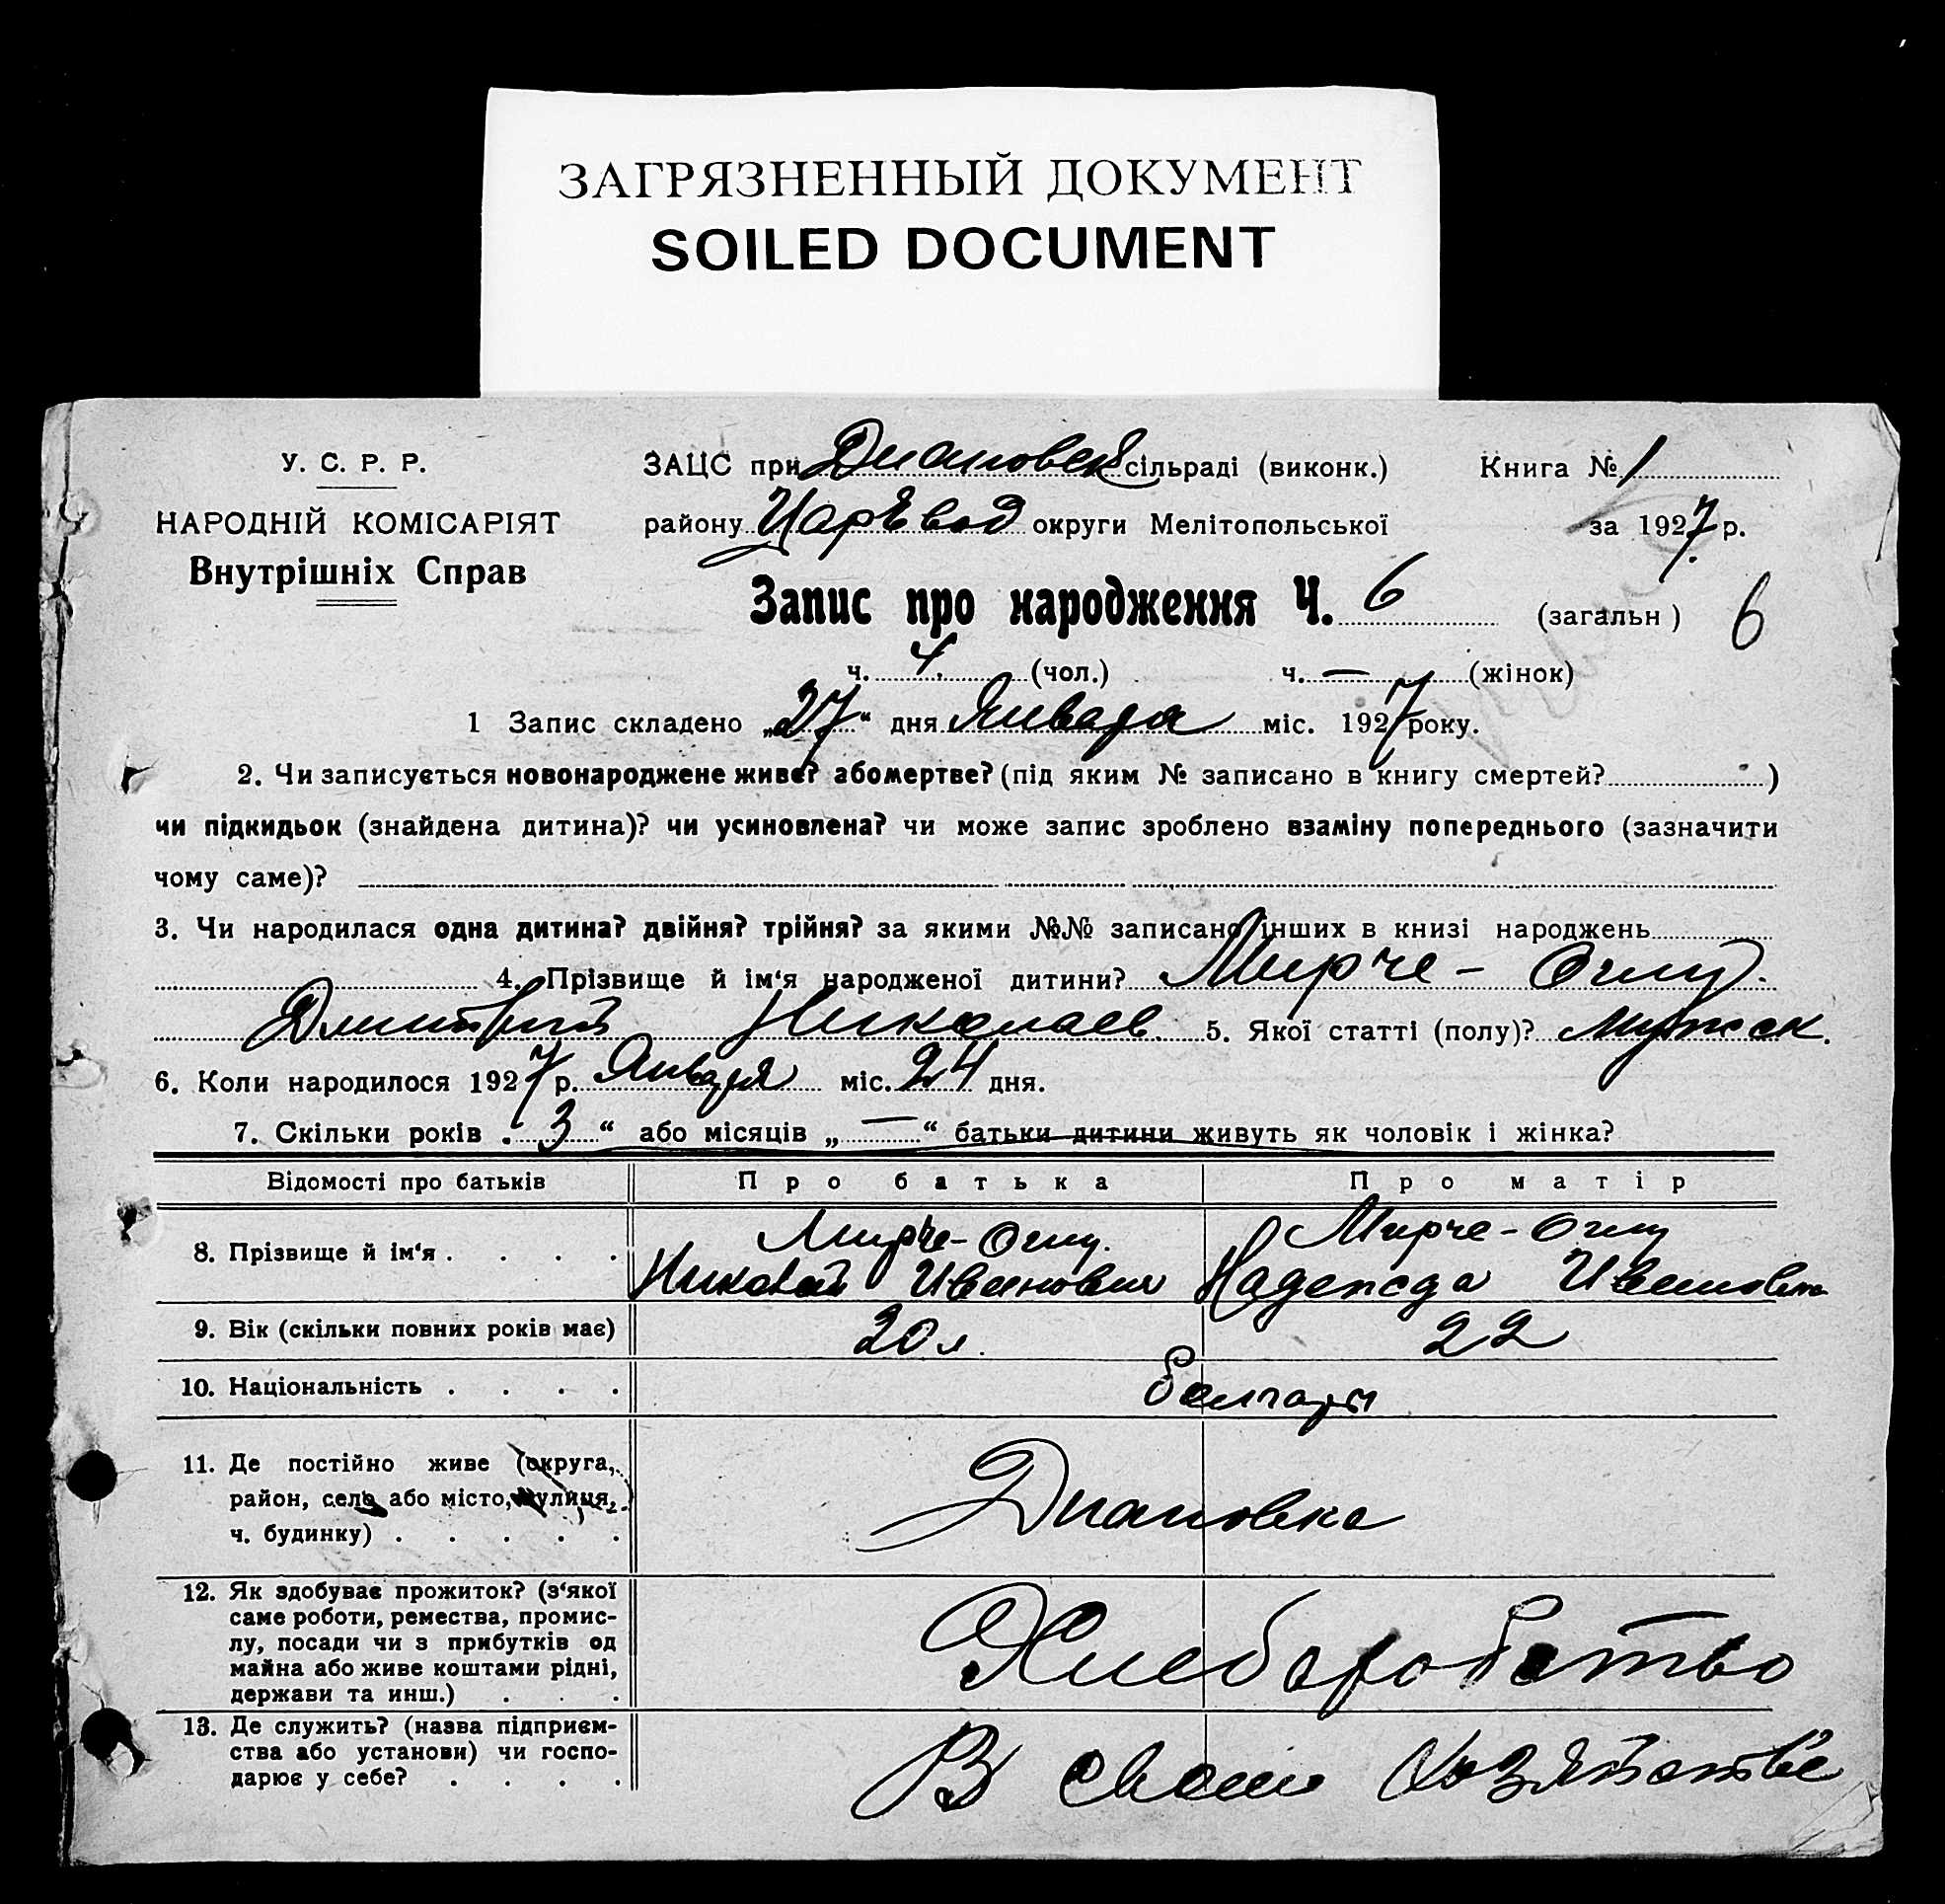 ЗАГРЯЗНЕННЫЙ ДОКУМЕНТ
SOILED DOCUMENT
У. С. Р. Р.
НАРОДНІЙ КОМІСАРІЯТ
Внутрішніх Справ
ЗАЦС при Диановск сільраді (виконк.) Книга № 1
району Царѣвод округи Мелітопольської за 1927 р.
Запис про народження Ч. 6 (загальн) 6
ч. 4 (чол.) ч. — (жінок)
1 Запис складено „27“ дня Января міс. 1927 року.
2. Чи записується новонароджене живе? або мертве? (під яким № записано в книгу смертей? -)
чи підкидьок (знайдена дитина)? чи усиновлена? чи може запис зроблено взаміну попереднього (зазначити
чому саме)?
3. Чи народилася одна дитина? двійня? трійня? за якими №№ записано інших в книзі народжень
4. Прізвище й ім‘я народженої дитини? Мирче-Оглу.
Дмитрий Николаев. 5. Якої статті (полу)? мужск.
6. Коли народилося 1927 р. Января міс. 24 дня.
7. Скільки років „3“ або місяців „—“ батьки дитини живуть як чоловік і жінка?
Відомості про батьків Про батька Про матір
8. Прізвище й ім‘я . . . . Мирче-Оглу. Николай Иванович Мирче-Оглу Надежда Ивановна
9. Вік (скільки повних років має) 20 л. 22
10. Національність . . . . болгары
11. Де постійно живе (округа,
район, село або місто, вулиця,
ч. будинку) . . . . . Диановка
12. Як здобуває прожиток? (з‘якої
саме роботи, ремества, промис-
лу, посади чи з прибутків од
майна або живе коштами рідні,
держави та инш.) . . . Хлеборобство
13. Де служить? (назва підприєм-
ства або установи) чи госпо-
дарює у себе? . . . . В своем хозяйстве